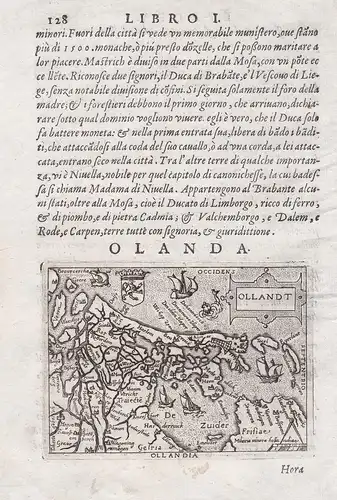 128 LIBRO I.
minori. Fuori della città si vede vn memorabile munistero, oue stāno
più di 1500. monache, ò più presto dōzelle, che si poßono maritare a
lor piacere. Mastrich è diuiso in due parti dalla Mosa, con vn pōte ec
cellēte. Riconosce due signori, il Duca di Brabāte, e'l Vescouo di Lie-
ge, senza notabile diuisione di cōfini. Si seguita solamente il foro della
madre; & i forestieri debbono il primo giorno, che arriuano, dichia-
rare sotto qual dominio vogliono viuere. egli è vero, che il Duca solo
fa battere moneta: & nella prima entrata sua, libera di bādo i bādi-
ti, che attaccādosi alla coda del suo cauallo, ò ad vna corda, a lei attac-
cata, entrano seco nella città. Tra l'altre terre di qualche importan-
za, vi è Niuella, nobile per quel capitolo di canonichesse, la cui bades-
sa si chiama Madama di Niuella. Appartengono al Brabante alcu-
ni stati, oltre alla Mosa, cioè il Ducato di Limborgo, ricco di ferro,
& di piombo, e di pietra Cadmia; & Valchemborgo, e Dalem, e
Rode, e Carpen, terre tutte con signoria, & giuriditione.
OLANDA.
OCCIDENS
OLLANDT
De
Zuider
Frisiae
Gelria
OLLANDIA
Hora